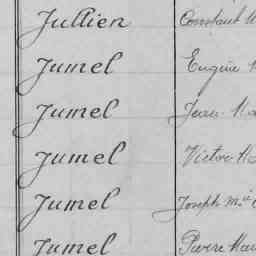 Jullien Constant
Jumel Eugène
Jumel Jean-Ma
Jumel Victor
Jumel Joseph Mie
Jumel Pierre Mar